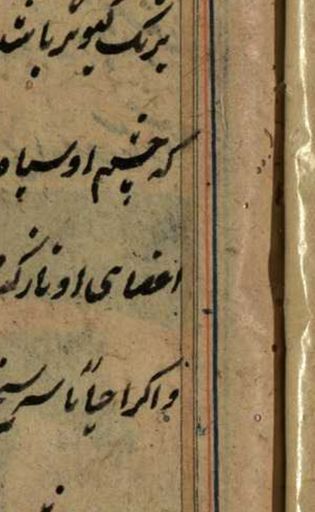 برنک کبوتر باشد
که چشم او سیاه
اعضای او نازک
و اکر احیاناً سر